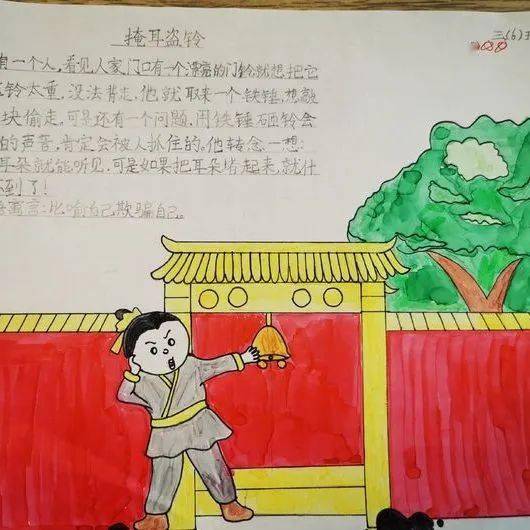 掩耳盗铃
三(6)班
有一个人，看见人家门口有一个漂亮的门铃，就想把它
铃太重，没法背走，他就取来一个铁锤，想敲
块偷走，可是还有一个问题，用铁锤砸铃会
的声音，肯定会被人抓住的，他转念一想：
耳朵就能听见，可是如果把耳朵堵起来，就什
不到了！
寓言：比喻自己欺骗自己。